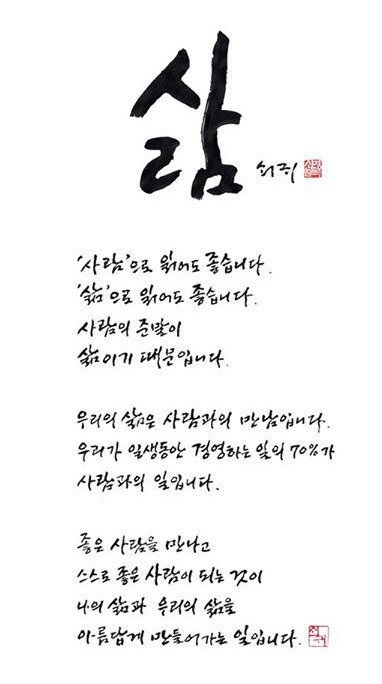 삶
쇠귀
'사람'으로 읽어도 좋습니다.
'삶'으로 읽어도 좋습니다.
사람의 준말이
삶이기 때문입니다.
우리의 삶은 사람과의 만남입니다.
우리가 일생동안 경영하는 일의 70%가
사람과의 일입니다.
좋은 사람을 만나고
스스로 좋은 사람이 되는 것이
나의 삶과 우리의 삶을
아름답게 만들어가는 일입니다.